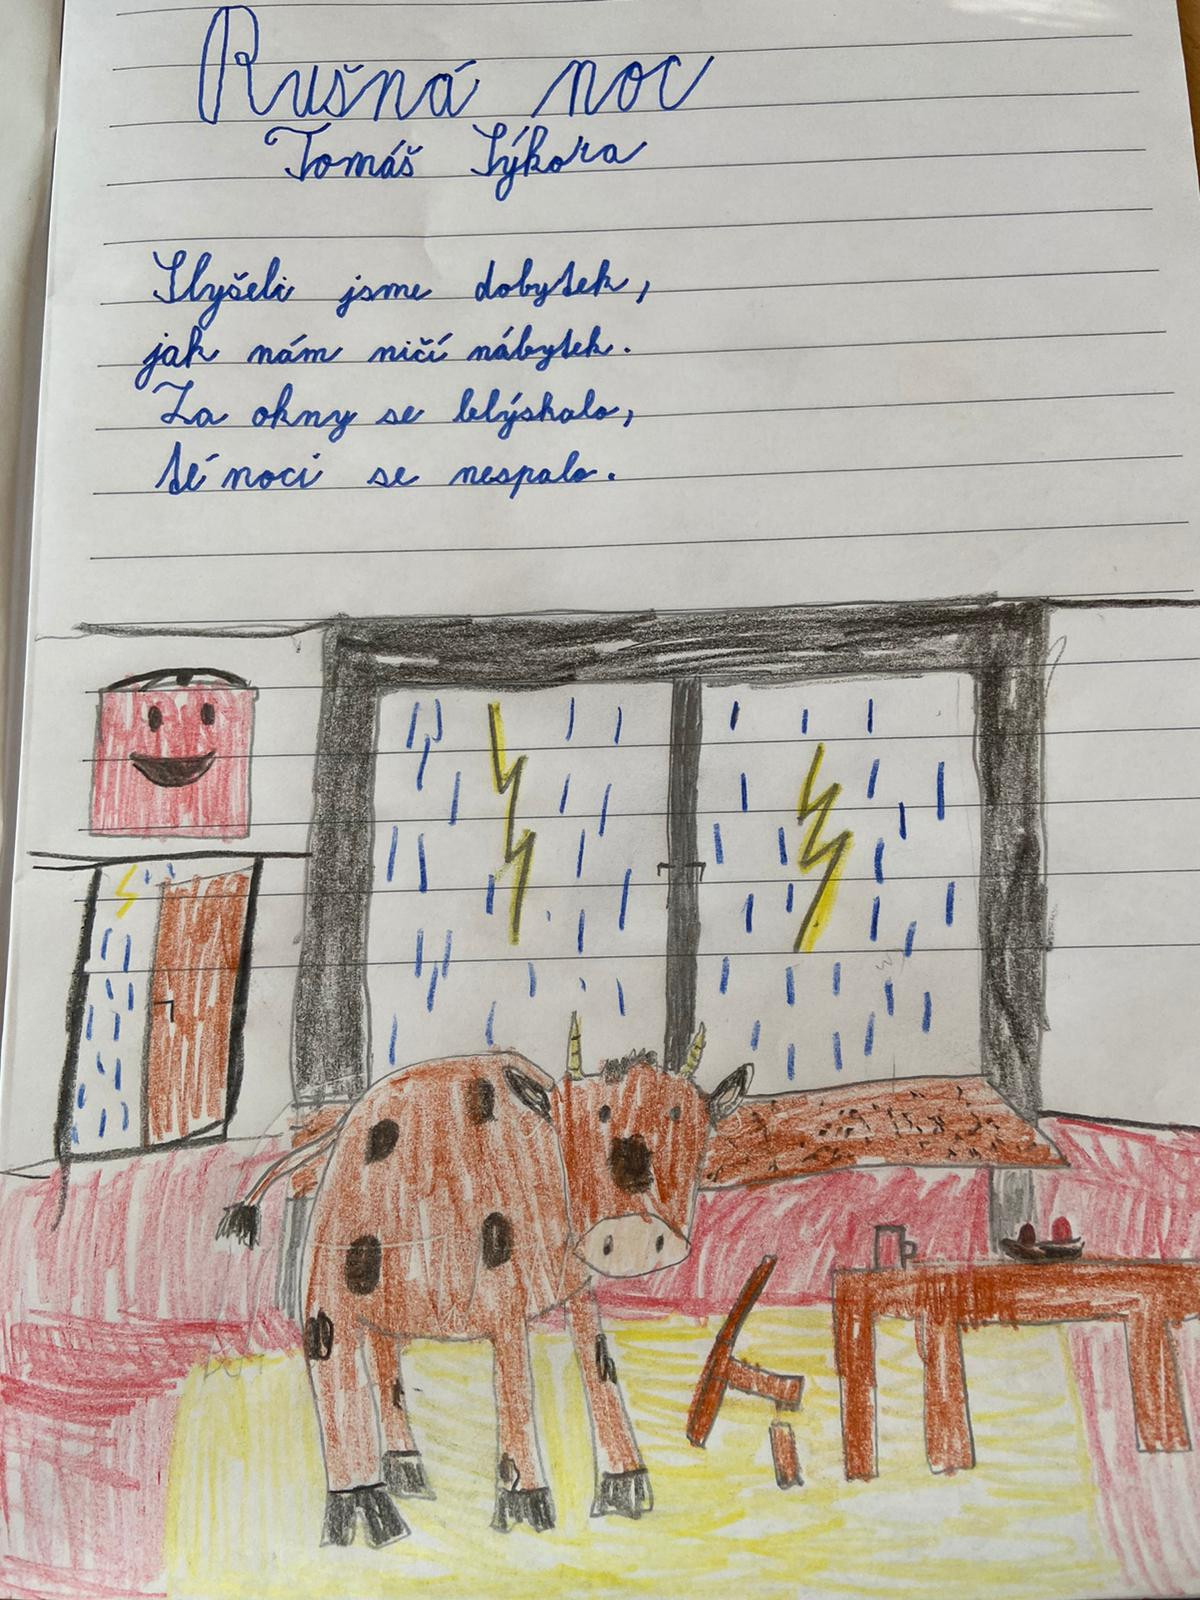 Rušná noc
Tomáš Sýkora
Slyšeli jsme dobytek,
jak nám ničí nábytek.
Za okny se blýskalo,
té noci se nespalo.